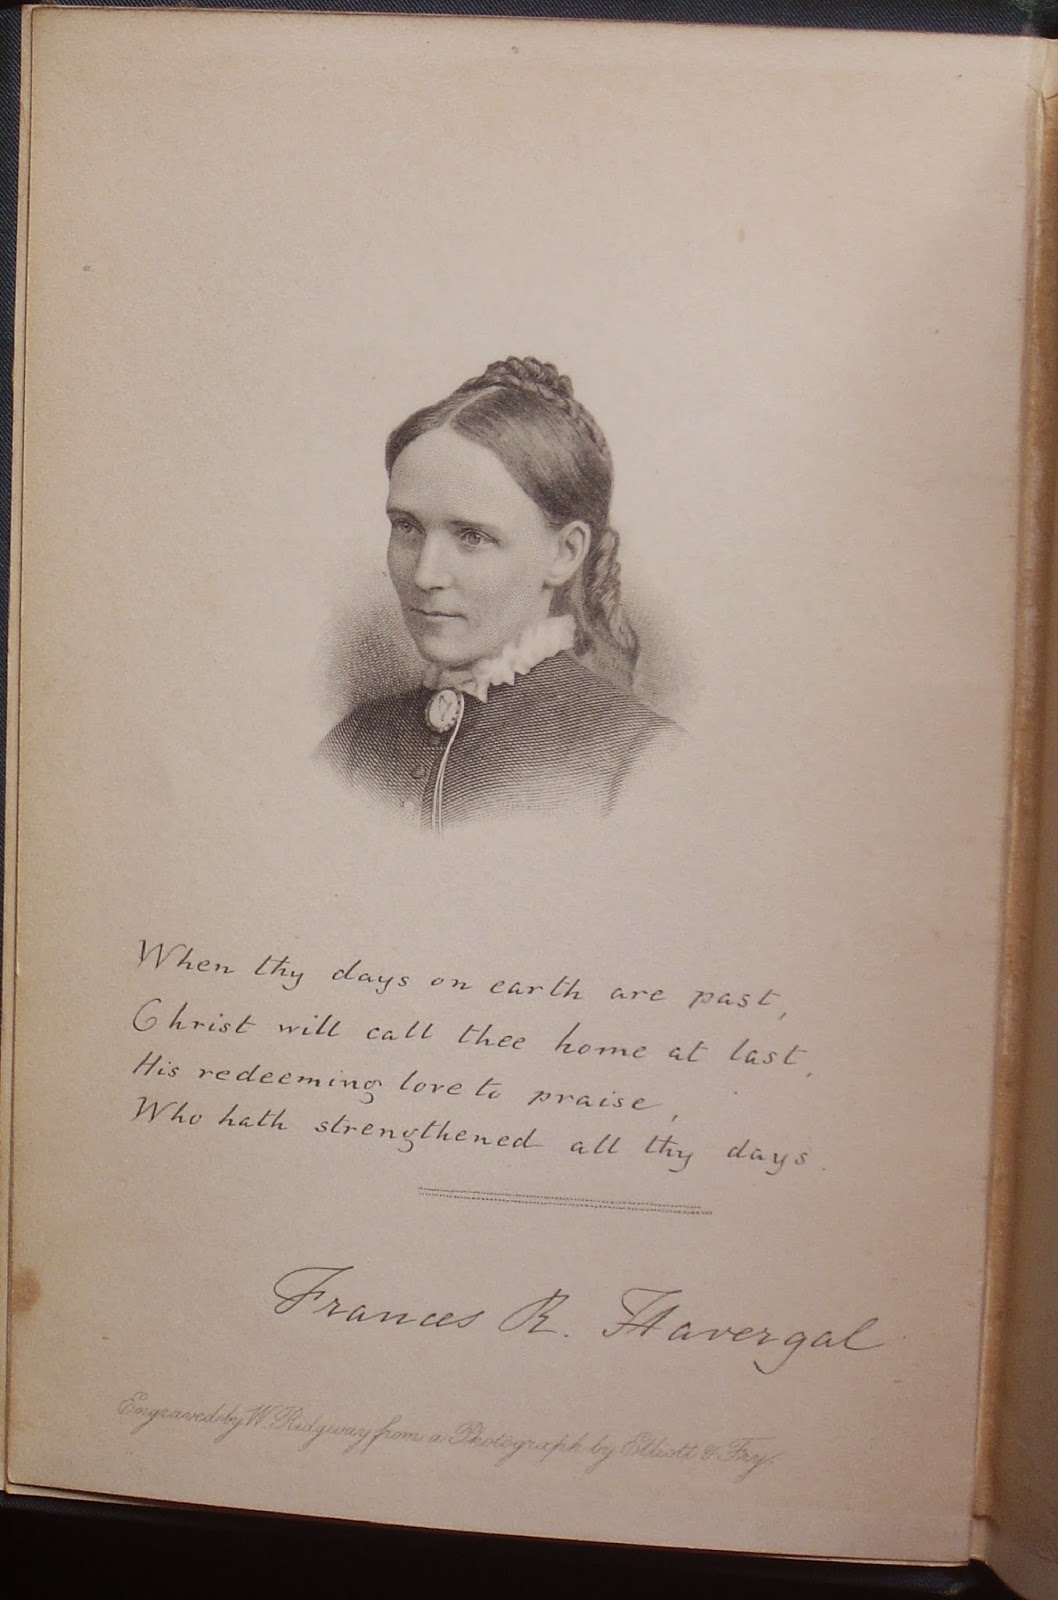 When thy days on earth are past,
Christ will call thee home at last,
His redeeming love to praise,
Who hath strengthened all thy days.
Frances R. Havergal
Engraved by W. Ridgway from a Photograph by Elliott & Fry.